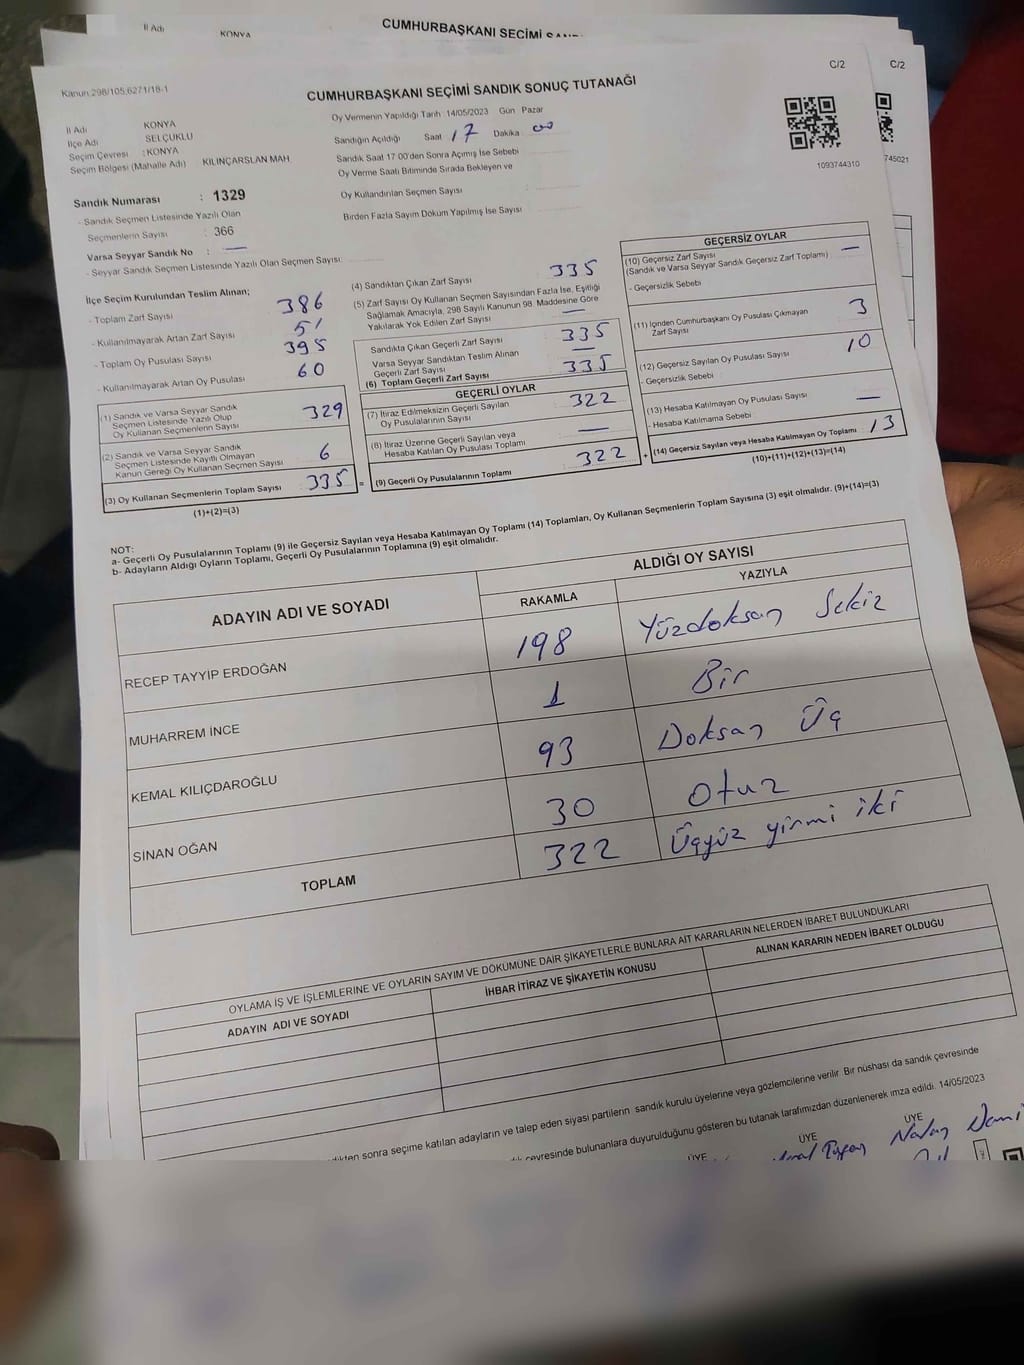 İl Adı KONYA CUMHURBAŞKANI SEÇİMİ
C/2
C/2
Kanun:298/105,6271/18-1
CUMHURBAŞKANI SEÇİMİ SANDIK SONUÇ TUTANAĞI
Oy Vermenin Yapıldığı Tarih 14/05/2023 Gün Pazar
İl Adı KONYA
İlçe Adı SELÇUKLU
Seçim Çevresi : KONYA
Seçim Bölgesi (Mahalle Adı) KILINÇARSLAN MAH.
Sandığın Açıldığı Saat 17 Dakika 00
Sandık Saat 17:00'den Sonra Açımış İse Sebebi
Oy Verme Saati Bitiminde Sırada Bekleyen ve
Oy Kullandırılan Seçmen Sayısı
Birden Fazla Sayım Döküm Yapılmış İse Sayısı
1093744310
745021
Sandık Numarası : 1329
- Sandık Seçmen Listesinde Yazılı Olan
Seçmenlerin Sayısı : 366
Varsa Seyyar Sandık No : —
- Seyyar Sandık Seçmen Listesinde Yazılı Olan Seçmen Sayısı:
İlçe Seçim Kurulundan Teslim Alınan;
- Toplam Zarf Sayısı 386
- Kullanılmayarak Artan Zarf Sayısı 51
- Toplam Oy Pusulası Sayısı 395
- Kullanılmayarak Artan Oy Pusulası 60
(1) Sandık ve Varsa Seyyar Sandık
Seçmen Listesinde Yazılı Olup
Oy Kullanan Seçmenlerin Sayısı 329
(2) Sandık ve Varsa Seyyar Sandık
Seçmen Listesinde Kayıtlı Olmayan
Kanun Gereği Oy Kullanan Seçmen Sayısı 6
(3) Oy Kullanan Seçmenlerin Toplam Sayısı 335
(1)+(2)=(3)
(4) Sandıktan Çıkan Zarf Sayısı 335
(5) Zarf Sayısı Oy Kullanan Seçmen Sayısından Fazla İse, Eşitliği
Sağlamak Amacıyla, 298 Sayılı Kanunun 98. Maddesine Göre
Yakılarak Yok Edilen Zarf Sayısı —
Sandıkta Çıkan Geçerli Zarf Sayısı 335
Varsa Seyyar Sandıktan Teslim Alınan
Geçerli Zarf Sayısı —
(6) Toplam Geçerli Zarf Sayısı 335
GEÇERLİ OYLAR
(7) İtiraz Edilmeksizin Geçerli Sayılan
Oy Pusulalarının Sayısı 322
(8) İtiraz Üzerine Geçerli Sayılan veya
Hesaba Katılan Oy Pusulası Toplamı —
= (9) Geçerli Oy Pusulalarının Toplamı 322
GEÇERSİZ OYLAR
(10) Geçersiz Zarf Sayısı —
(Sandık ve Varsa Seyyar Sandık Geçersiz Zarf Toplamı)
- Geçersizlik Sebebi
(11) İçinden Cumhurbaşkanı Oy Pusulası Çıkmayan
Zarf Sayısı 3
(12) Geçersiz Sayılan Oy Pusulası Sayısı 10
- Geçersizlik Sebebi
(13) Hesaba Katılmayan Oy Pusulası Sayısı —
- Hesaba Katılmama Sebebi
+ (14) Geçersiz Sayılan veya Hesaba Katılmayan Oy Toplamı 13
(10)+(11)+(12)+(13)=(14)
NOT:
a- Geçerli Oy Pusulalarının Toplamı (9) ile Geçersiz Sayılan veya Hesaba Katılmayan Oy Toplamı (14) Toplamları, Oy Kullanan Seçmenlerin Toplam Sayısına (3) eşit olmalıdır. (9)+(14)=(3)
b- Adayların Aldığı Oyların Toplamı, Geçerli Oy Pusulalarının Toplamına (9) eşit olmalıdır.
ADAYIN ADI VE SOYADI ALDIĞI OY SAYISI
RAKAMLA YAZIYLA
RECEP TAYYİP ERDOĞAN 198 Yüzdoksan Sekiz
MUHARREM İNCE 1 Bir
KEMAL KILIÇDAROĞLU 93 Doksan Üç
SİNAN OĞAN 30 Otuz
TOPLAM 322 Üçyüz yirmi iki
OYLAMA İŞ VE İŞLEMLERİNE VE OYLARIN SAYIM VE DÖKÜMÜNE DAİR ŞİKAYETLERLE BUNLARA AİT KARARLARIN NELERDEN İBARET BULUNDUKLARI
ADAYIN ADI VE SOYADI İHBAR İTİRAZ VE ŞİKAYETİN KONUSU ALINAN KARARIN NEDEN İBARET OLDUĞU
sonra seçime katılan adayların ve talep eden siyasi partilerin sandık kurulu üyelerine veya gözlemcilerine verilir. Bir nüshası da sandık çevresinde
çevresinde bulunanlara duyurulduğunu gösteren bu tutanak tarafımızdan düzenlenerek imza edildi. 14/05/2023
ÜYE ÜYE ÜYE